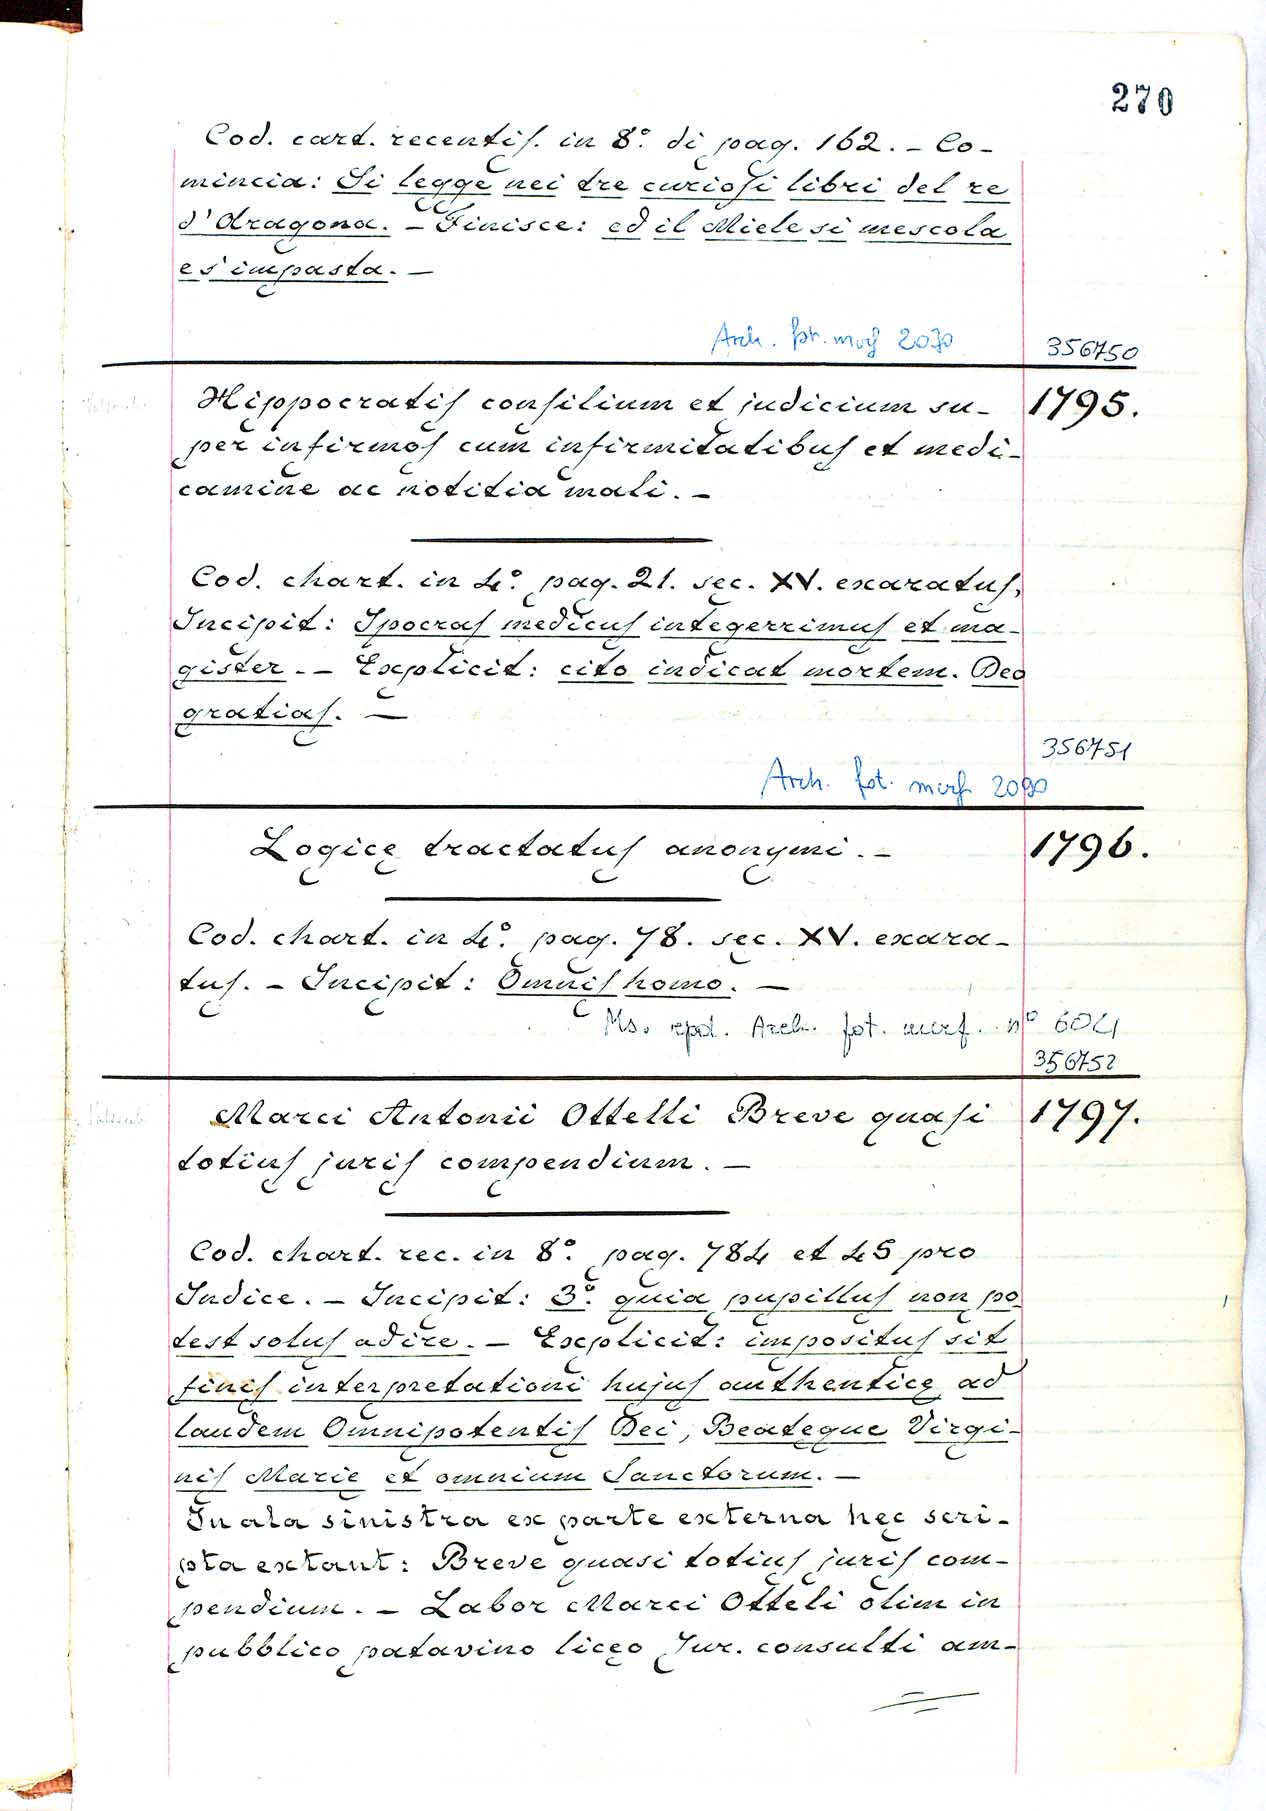 270
Cod. cart. recentis. in 8°. di pag. 162. – Co-
mincia: Si legge nei tre curiosi libri del re
d'Aragona. – Finisce: ed il Miele si mescola
e s'impasta. –
Arch. fot. mosf 2070
356750
Hippocratis consilium et judicium su- 1795.
per infirmos cum infirmitatibus et medi-
camine ac notitia mali. –
Cod. chart. in 4°. pag. 21. sec. XV. exaratus.
Incipit: Ipocras medicus integerrimus et ma-
gister. – Explicit: cito indicat mortem. Deo
gratias. –
356751
Arch. fot. mosf 2090
Logicę tractatus anonymi. – 1796.
Cod. chart. in 4°. pag. 78. sec. XV. exara-
tus. – Incipit: Omnis homo. –
Ms. Arch. fot. n° 6024
356752
Marci Antonii Ottelli Breve quasi 1797.
totius juris compendium. –
Cod. chart. rec. in 8°. pag. 784 et 45 pro
Indice. – Incipit: 3°. quia pupillus non po-
test solus adire. – Explicit: impositus sit
finis interpretationi hujus authenticę ad
laudem Omnipotentis Dei, Beatęque Virgi-
nis Marię et omnium Sanctorum. –
In ala sinistra ex parte externa hęc scri-
pta extant: Breve quasi totius juris com-
pendium. – Labor Marci Otteli olim in
pubblico patavino licęo Jur. consulti am-